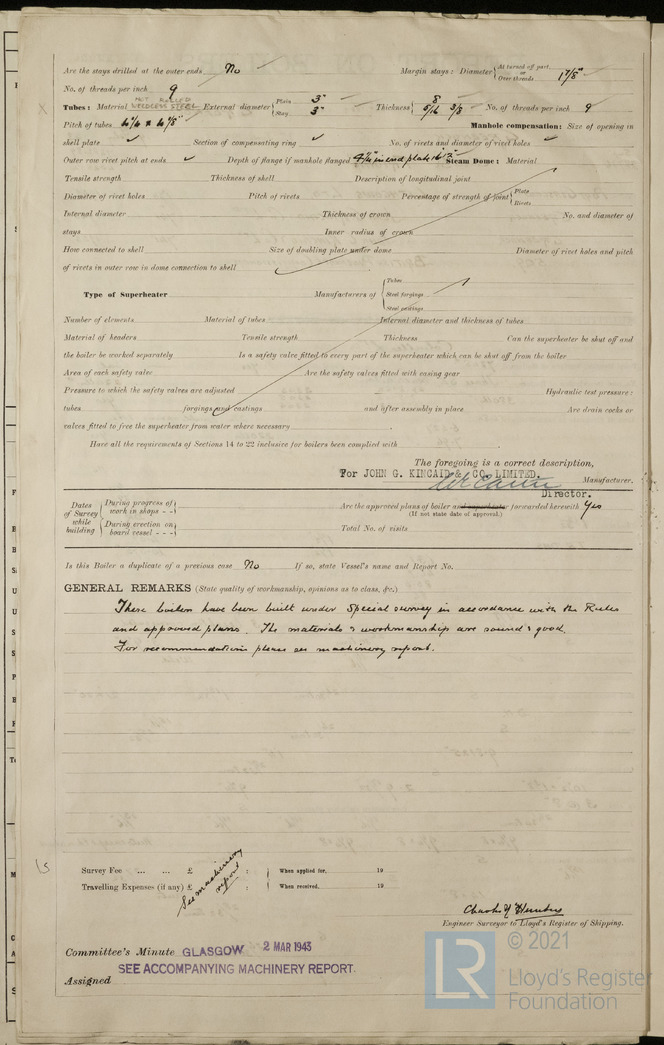 Are the stays drilled at the outer ends No Margin stays: Diameter { At turned off part, or Over threads 1 7/8"
No. of threads per inch 9
Tubes: Material HOT ROLLED WELDLESS STEEL External diameter { Plain 3" Stay 3" Thickness { 8 5/16 3/8 No. of threads per inch 9
Pitch of tubes Manhole compensation: Size of opening in
shell plate ✓ Section of compensating ring ✓ No. of rivets and diameter of rivet holes ✓
Outer row rivet pitch at ends ✓ Depth of flange if manhole flanged in end plate Steam Dome: Material
Tensile strength Thickness of shell Description of longitudinal joint
Diameter of rivet holes Pitch of rivets Percentage of strength of joint { Plate Rivets
Internal diameter Thickness of crown No. and diameter of
stays Inner radius of crown
How connected to shell Size of doubling plate under dome Diameter of rivet holes and pitch
of rivets in outer row in dome connection to shell
Type of Superheater Manufacturers of { Tubes Steel forgings Steel castings
Number of elements Material of tubes Internal diameter and thickness of tubes
Material of headers Tensile strength Thickness Can the superheater be shut off and
the boiler be worked separately Is a safety valve fitted to every part of the superheater which can be shut off from the boiler
Area of each safety valve Are the safety valves fitted with easing gear
Pressure to which the safety valves are adjusted Hydraulic test pressure:
tubes forgings and castings and after assembly in place Are drain cocks or
valves fitted to free the superheater from water where necessary
Have all the requirements of Sections 14 to 22 inclusive for boilers been complied with
The foregoing is a correct description,
For JOHN G. KINCAID & CO. LIMITED. Manufacturer.
Director.
Dates of Survey while building { During progress of work in shops - - } { During erection on board vessel - - - }
Are the approved plans of boiler and superheater forwarded herewith Yes
(If not state date of approval.)
Total No. of visits
Is this Boiler a duplicate of a previous case No If so, state Vessel's name and Report No.
GENERAL REMARKS (State quality of workmanship, opinions as to class, &c.)
These boilers have been built under Special survey in accordance with the Rules
and approved plans. The materials & workmanship are sound & good.
For recommendation please see machinery report.
Survey Fee ... ... £ : : When applied for, 19
Travelling Expenses (if any) £ : : When received, 19
See machinery report
Engineer Surveyor to Lloyd's Register of Shipping.
Committee's Minute GLASGOW 2 MAR 1943
SEE ACCOMPANYING MACHINERY REPORT.
Assigned
LR © 2021
Lloyd's Register
Foundation